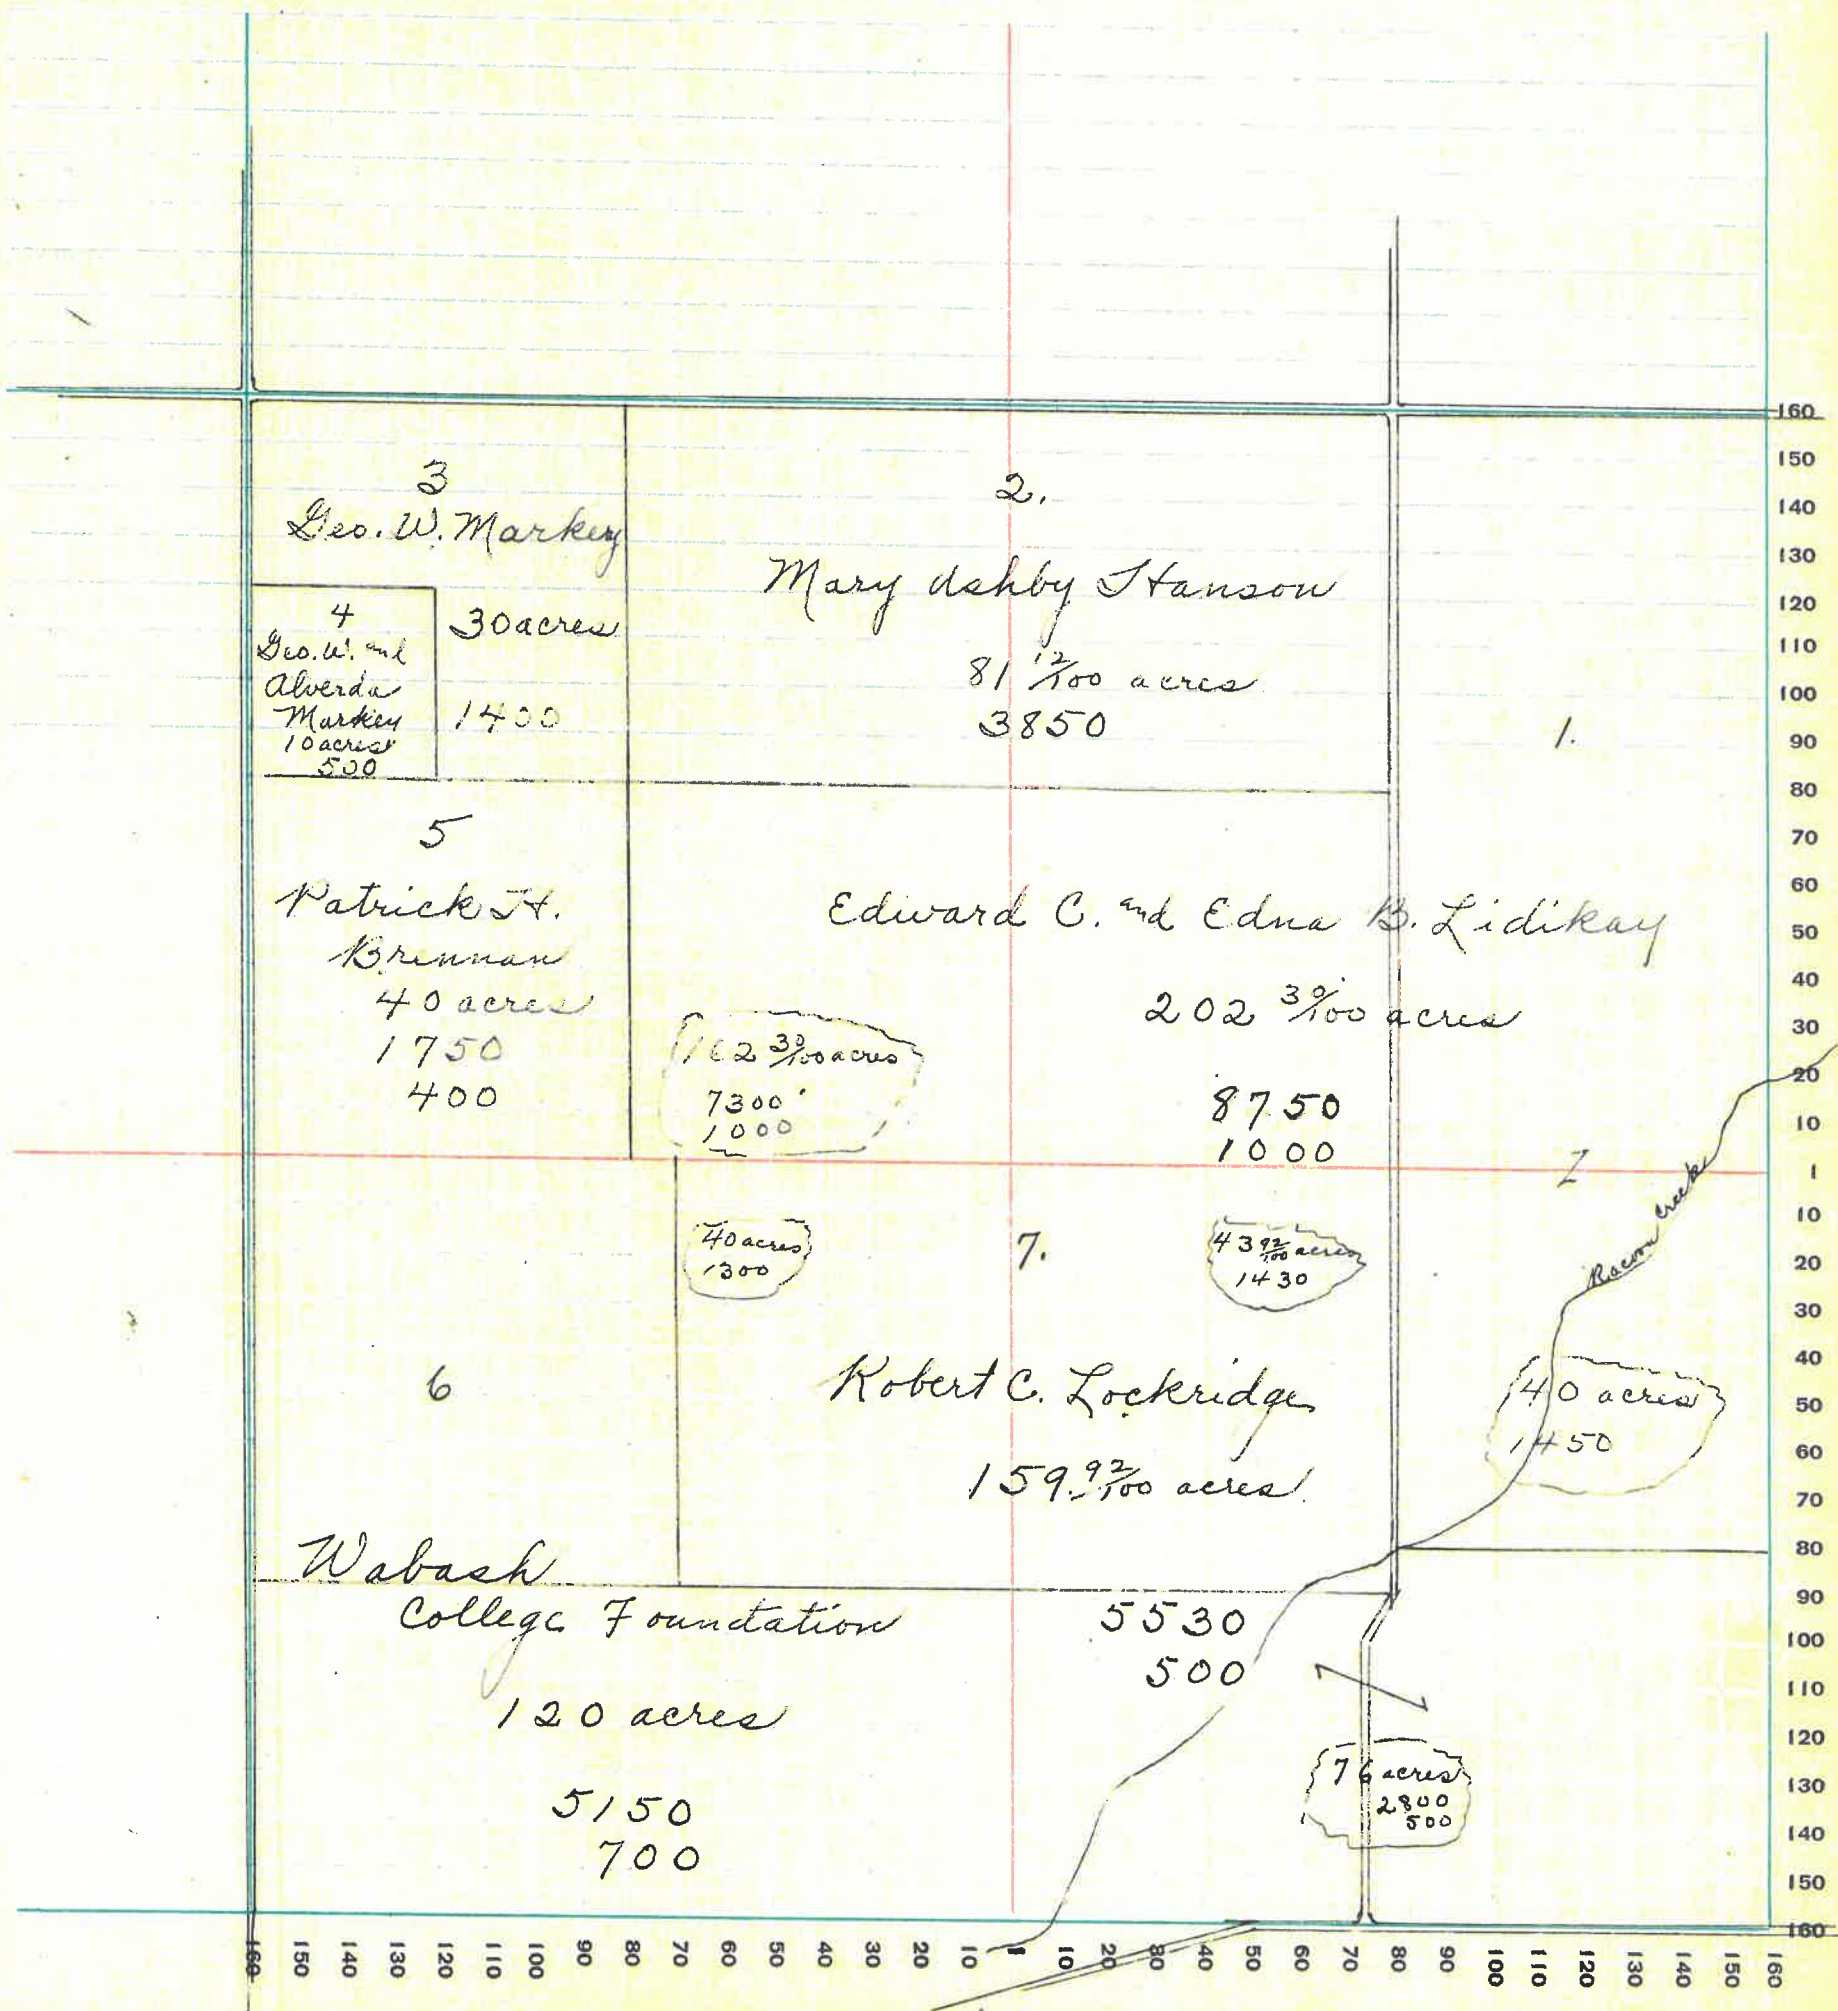 3
Geo. W. Markey
30 acres
1400
4
Geo. W. and
Alverda
Markey
10 acres
500
2.
Mary Ashby Hanson
81 12/100 acres
3850
1.
5
Patrick H.
Brennan
40 acres
1750
400
Edward C. and Edna B. Lidikay
202 30/100 acres
8750
1000
162 30/100 acres
7300
1000
40 acres
1300
7.
43 92/100 acres
1430
Racoon Creek
40 acres
1450
6
Robert C. Lockridge
159.92/100 acres
5530
500
Wabash
College Foundation
120 acres
5150
700
76 acres
2800
500
160
150
140
130
120
110
100
90
80
70
60
50
40
30
20
10
1
10
20
30
40
50
60
70
80
90
100
110
120
130
140
150
160
160 150 140 130 120 110 100 90 80 70 60 50 40 30 20 10 1 10 20 30 40 50 60 70 80 90 100 110 120 130 140 150 160